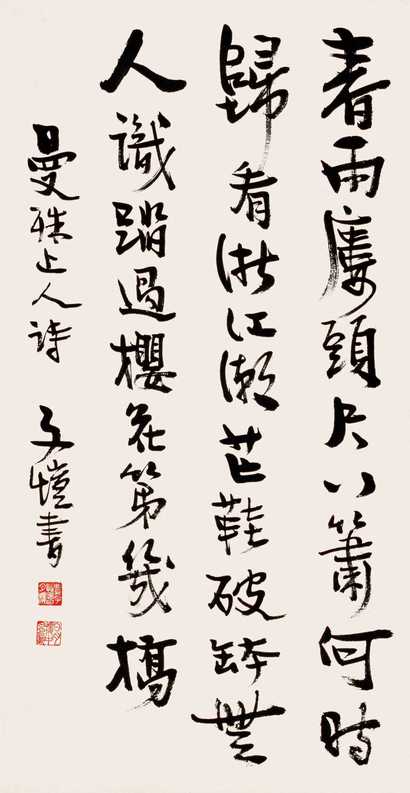 春雨廔頭尺八簫何時
歸看浙江潮芒鞋破缽無
人識踏過櫻花第幾橋
曼殊上人詩 子愷書